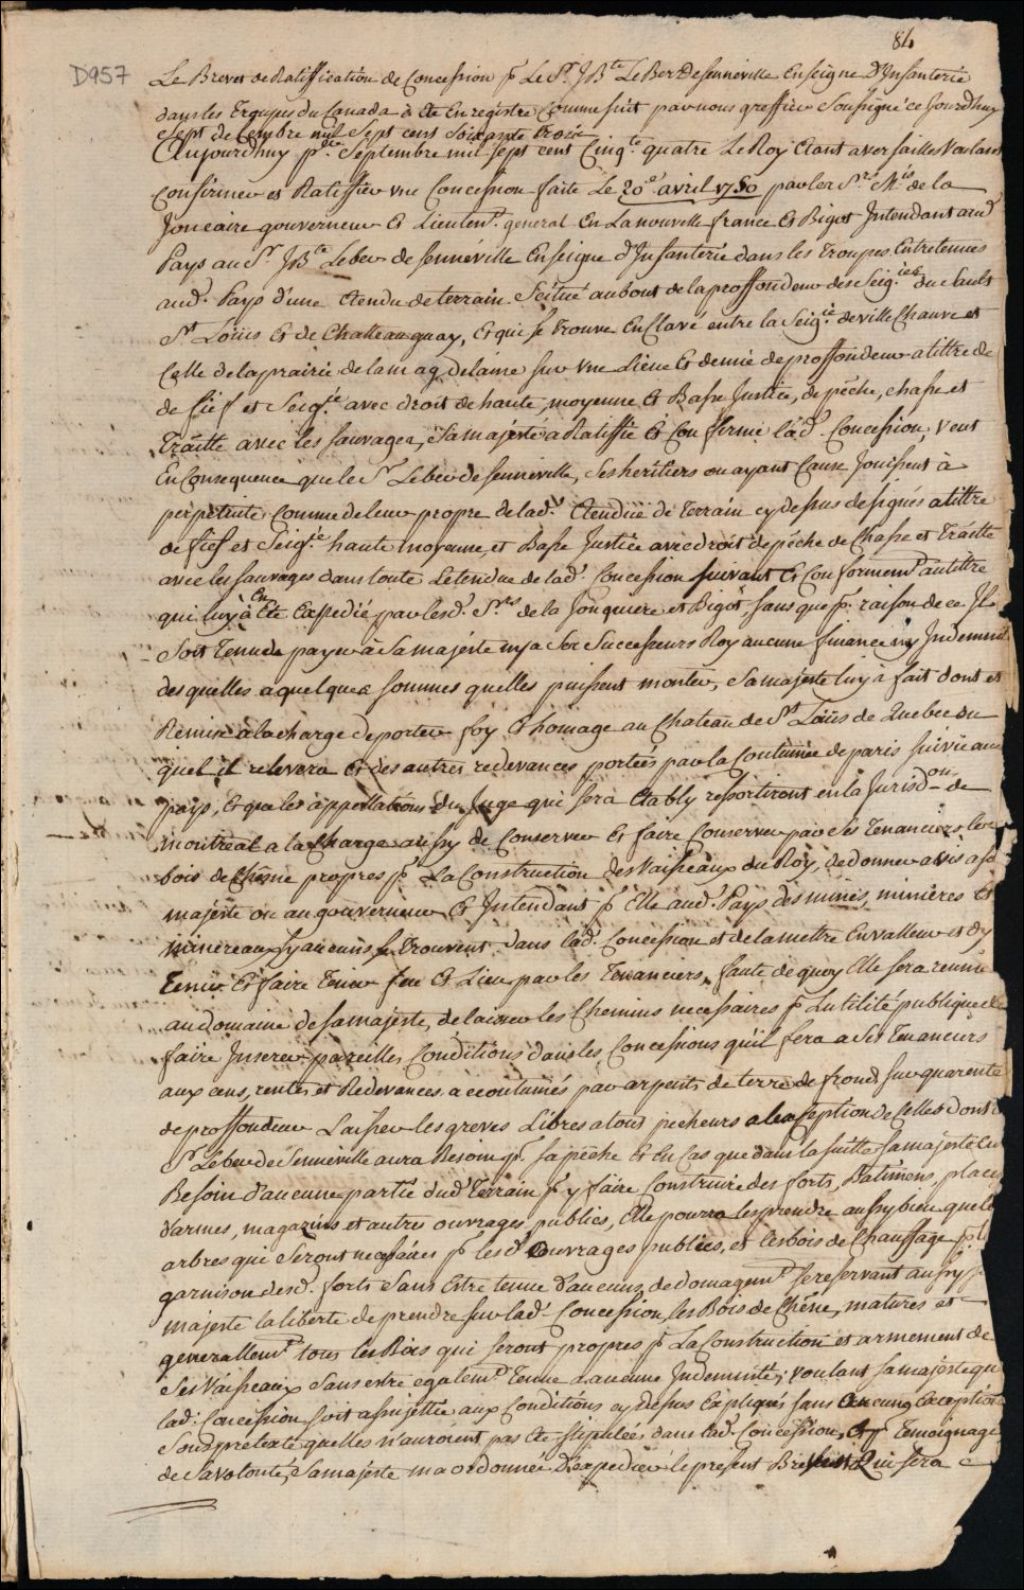 84
D957
Le Brevet de Ratiffication de Concession pr. Le Sr. J Bte. LeBer Desenneville Enseigne D'Infanterie
dans les troupes du Canada à Eté Enregistré Comme suit par nous greffier Soussigné ce Jourdhuy
sept decembre mil sept cens soixante trois
Aujourdhuy pr. Septembre mil sept cent Cinqte. quatre Le Roy Etant a versailles Voulant
Confirmer et Ratiffier une Concession faite Le 20e. avril 1750 par les Srs. Mis. de la
Joncaire gouverneur Et Lieutent. general En La nouvelle france Et Bigot Intendant aud
Pays au Sr. J Bte. Leber de Senneville Enseigne D'Infanterie dans les troupes Entretenues
aud. Pays d'une Etendu de terrain Scitué au bout de la proffondeur des Seigies. du Sault
St. Loüis Et de Chatteauguay, Et qui se trouve EnClavé entre la Seigie. de ville Chauve et
Celle de la prairie de la magdelaine sur une Lieue Et demie de proffondeur a tittre de
de fief et Seigie. avec droit de haute, moyenne Et Basse Justice, de pêche, chasse et
Traitte avec les sauvages, Sa majesté a Ratiffié Et Confirmé lad. Concession, Veut
En Consequence que le Sr. Leber de Senneville, Ses heritiers ou ayant Cause Jouissent à
perpetuité Comme de leur propre de lad. Etendüe de Terrain cy dessus designés a tittre
de fief et Seigie. haute moyenne, et Basse Justice avec droit de pêche de Chasse et Traitte
avec les sauvages dans toute Letendue de lad. Concession suivant Et Conformement. au tittre
qui luy à En Eté Expedié par lesd. Srs. de la Jonquiere et Bigot sans que pr. raison de ce Il
Soit Tenu de payer à Sa majesté ny a Ses Successeurs Roy aucune finance ny Indemnité
des quelles a quelques sommes quelles puissent monter, Sa majesté luy à fait dont et
Remise à la charge de porter foy Et homage au Chateau de St. Loüis de Quebec du
quel il relevera Et des autres redevances portées par la Coutume de paris suivie aud
pays, Et que les appellations du Juge qui sera Etably ressortiront en la Jurisdon. de
montreal a la Charge aussy de Conserver Et faire Conserver par Ses Tenanciers les
bois de Chêne propres pr. La Construction des Vaisseaux du Roy, de donner avis a sa
majesté ou au gouverneur Et Intendant pr. Elle aud. Pays des mines, minières Et
minereaux sy aucuns se trouvent dans lad. Concession et de la mettre En valleur et d'y
Tenir Et faire Tenir feu Et Lieu par les Tenanciers, faute de quoy Elle sera reunie
au domaine de Sa majesté, de laisser les Chemins necessaires pr. Lutilité publique de
faire Inserer pareilles Conditions dans les Concessions qu'il fera a Ses Tenanciers
aux cens, rentes et Redevances accoutumés par arpents de terre de frond sur quarente
de proffondeur Laisser les greves Libres a tous pecheurs a lexception de Celles dont le
Sr. Leber de Senneville aura Besoin pr. sa pêche Et En Cas que dans la suitte Sa majesté Eu
Besoin d'aucune partie dud Terrain pr. y faire Construire des forts, Batimens, places
darmes, magazins et autres ouvrages publics, Elle pourra les prendre aussy bien que les
arbres qui Seront necessaires pr. lesd. Ouvrages publics, et les bois de Chauffage pr. la
garnison desd. forts sans Estre tenue d'aucuns dedomagemt. Se reservant aussy Sa
majesté la liberté de prendre sur lad. Concession les Bois de Chêne, matures et
generallemt. tous les Bois qui seront propres pr. La Construction et armement de
Ses Vaisseaux sans estre egalemt. Tenue d'aucune Indemnité; voulant Sa majesté que
lad. Concession soit assujettie aux Conditions cy dessus Expliqués sans Aucune Exception
Sous pretexte quelles n'auroient pas Eté stipulées dans lad. Concession, Et pr. Temoignage
de Sa volonté, Sa majesté ma ordonnée d'expedier le present Brevet Qui sera